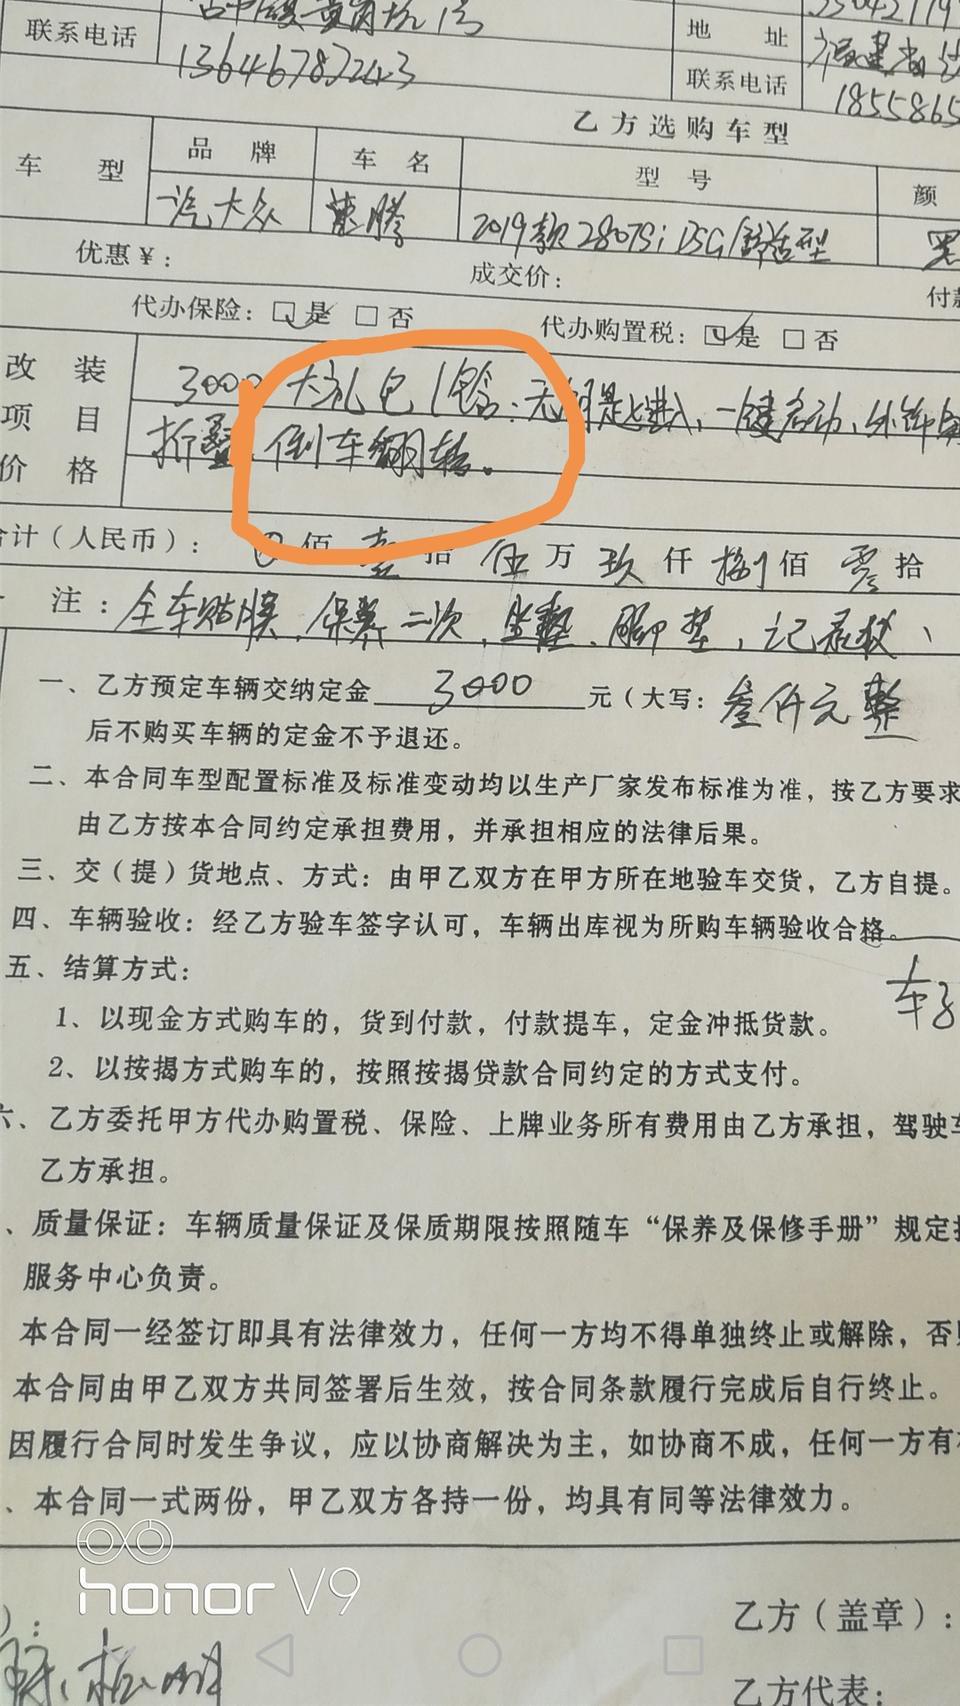 古中镇黄岗坑1号
联系电话 13646787243
地 址 福建省
联系电话 1855865
乙方选购车型
车 型 品 牌 车 名 型 号 颜
一汽大众 速腾 2019款280TSi DSG舒适型 黑
优惠¥: 成交价: 付款
代办保险: 是 否 代办购置税: 是 否
改 装 3000 大礼包(含:无钥匙进入、一键启动、外饰
项 目 折叠 倒车翻转。
价 格
合计(人民币): 0 佰 壹 拾 伍 万 玖 仟 捌 佰 零 拾
注: 全车贴膜、保养二次、坐垫、脚垫、记录仪、
一、乙方预定车辆交纳定金 3000 元(大写: 叁仟元整
后不购买车辆的定金不予退还。
二、本合同车型配置标准及标准变动均以生产厂家发布标准为准,按乙方要求
由乙方按本合同约定承担费用,并承担相应的法律后果。
三、交(提)货地点、方式:由甲乙双方在甲方所在地验车交货,乙方自提。
四、车辆验收:经乙方验车签字认可,车辆出库视为所购车辆验收合格。
五、结算方式: 车子
1、以现金方式购车的,货到付款,付款提车,定金冲抵货款。
2、以按揭方式购车的,按照按揭贷款合同约定的方式支付。
六、乙方委托甲方代办购置税、保险、上牌业务所有费用由乙方承担,驾驶车
乙方承担。
、质量保证:车辆质量保证及保质期限按照随车“保养及保修手册”规定
服务中心负责。
本合同一经签订即具有法律效力,任何一方均不得单独终止或解除,否则
本合同由甲乙双方共同签署后生效,按合同条款履行完成后自行终止。
因履行合同时发生争议,应以协商解决为主,如协商不成,任何一方有
、本合同一式两份,甲乙双方各持一份,均具有同等法律效力。
honor V9
): 乙方(盖章):
乙方代表: